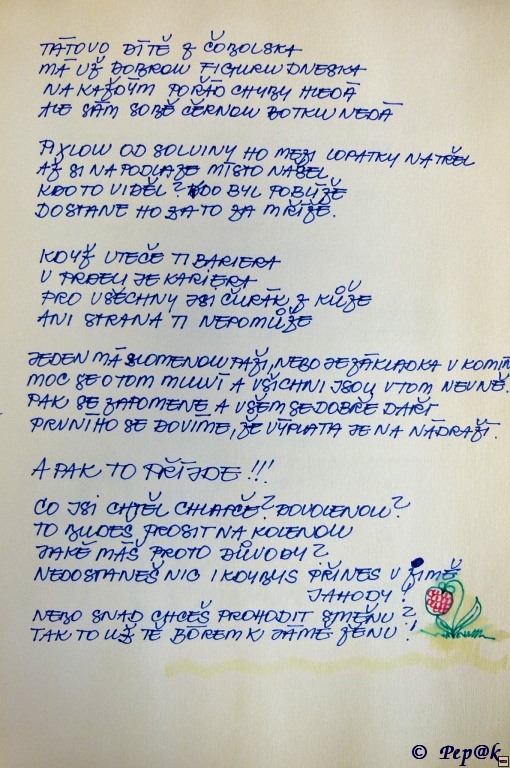 TÁTOVO DÍTĚ Z ČOBOLSKA
MÁ UŽ DOBROU FIGURU DNESKA
NA KAŽDÝM POŘÁD CHYBY HLEDÁ
ALE SÁM SOBĚ ČERNOU BOTKU NEDÁ
OD SOLVINY HO MEZI LOPATKY NATŘEL
AŽ SI NA PODLAZE MÍSTO NAŠEL
KDO TO VIDĚL? KDO BYL POBLÍŽE
DOSTANE HO ZA TO ZA MŘÍŽE.
KDYŽ UTEČE TI BARIERA
V PRDELI JE KARIERA
PRO VŠECHNY JSI ČURÁK Z KŮŽE
ANI STRANA TI NEPOMŮŽE
JEDEN MÁ ZLOMENOU PAŽI, NEBO JE ZÁKLADKA V KOMÍN
MOC SE O TOM MLUVÍ A VŠICHNI JSOU V TOM NEVNĚ.
PAK SE ZAPOMENE A VŠEM SE DOBŘE DAŘÍ
PRVNÍHO SE DOVÍME, ŽE VÝPLATA JE NA NÁDRAŽÍ.
A PAK TO PŘÍJDE!!!
CO JSI CHTĚL CHLAPČE? DOVOLENOU?
TO BUDEŠ PROSIT NA KOLENOU
JAKÉ MÁŠ PROTO DŮVODY?
NEDOSTANEŠ NIC I KDYBYS PŘINES V ZIMĚ
JAHODY!
NEBO SNAD CHCEŠ PROHODIT SMĚNU?
TAK TO UŽ TĚ BEREM K JÁMĚ ŽENU!
© Pep@k